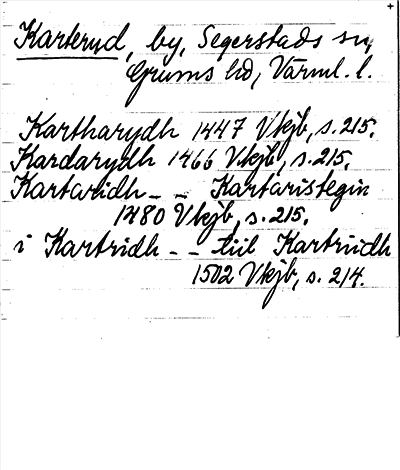 Karterud, by, Segerstads sn,
Grums hd, Värml. l.
Kartharydh 1447 Vkjb, s. 215.
Kardarydh 1466 Vkjb, s. 215.
Kartaridh - - Kartaristegin
1480 Vkjb, s. 215.
i Kartridh - - till Kartriidh
1502 Vkjb, s. 214.